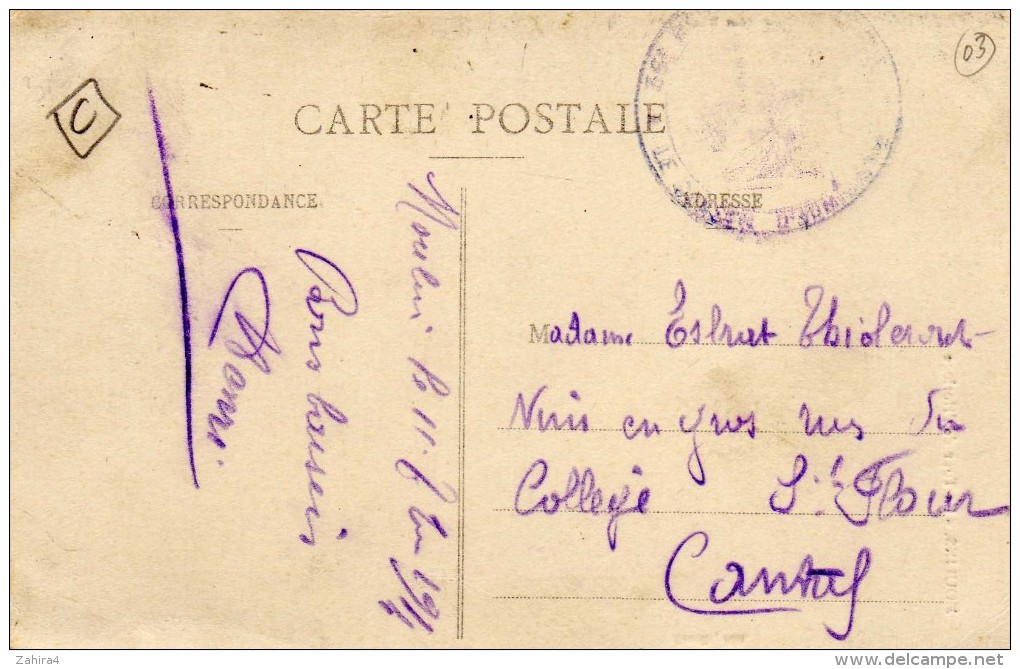 03
C
CARTE POSTALE
CORRESPONDANCE
ADRESSE
Moulins le 11.
Bons baisers
Madame Estrat Thioleront
Vins en gros rue du
College St Flour
Cantal
Zahira4
www.delcampe.net